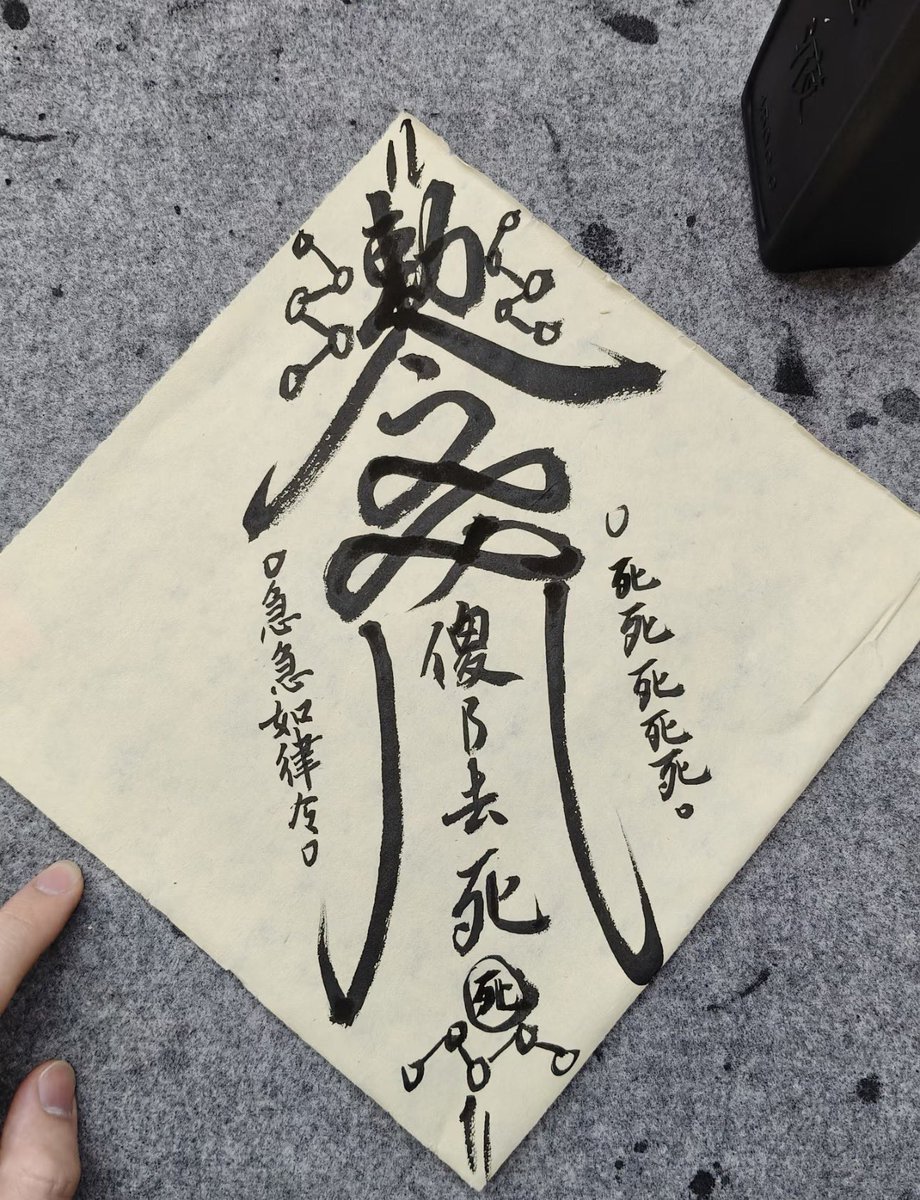 敕令
死死死死死
傻B去死
死
急急如律令